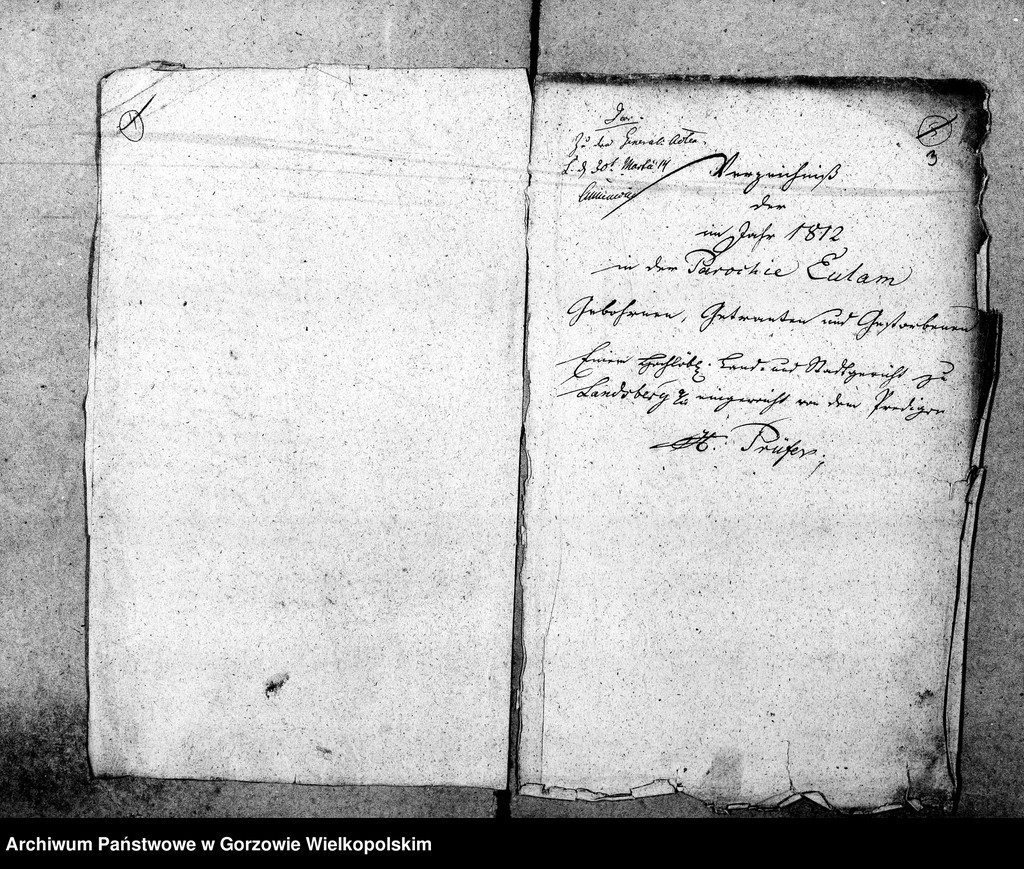 Zu den General-Acten.
3
Verzeichniß
der
im Jahr 1812
in der Parochie Eulam
Gebohrnen, Getrauten und Gestorbenen
Einem Hochlöbl. Land- und Stadtgericht zu
Landsberg a/W eingereicht von dem Prediger
Prüfer.
Archiwum Państwowe w Gorzowie Wielkopolskim